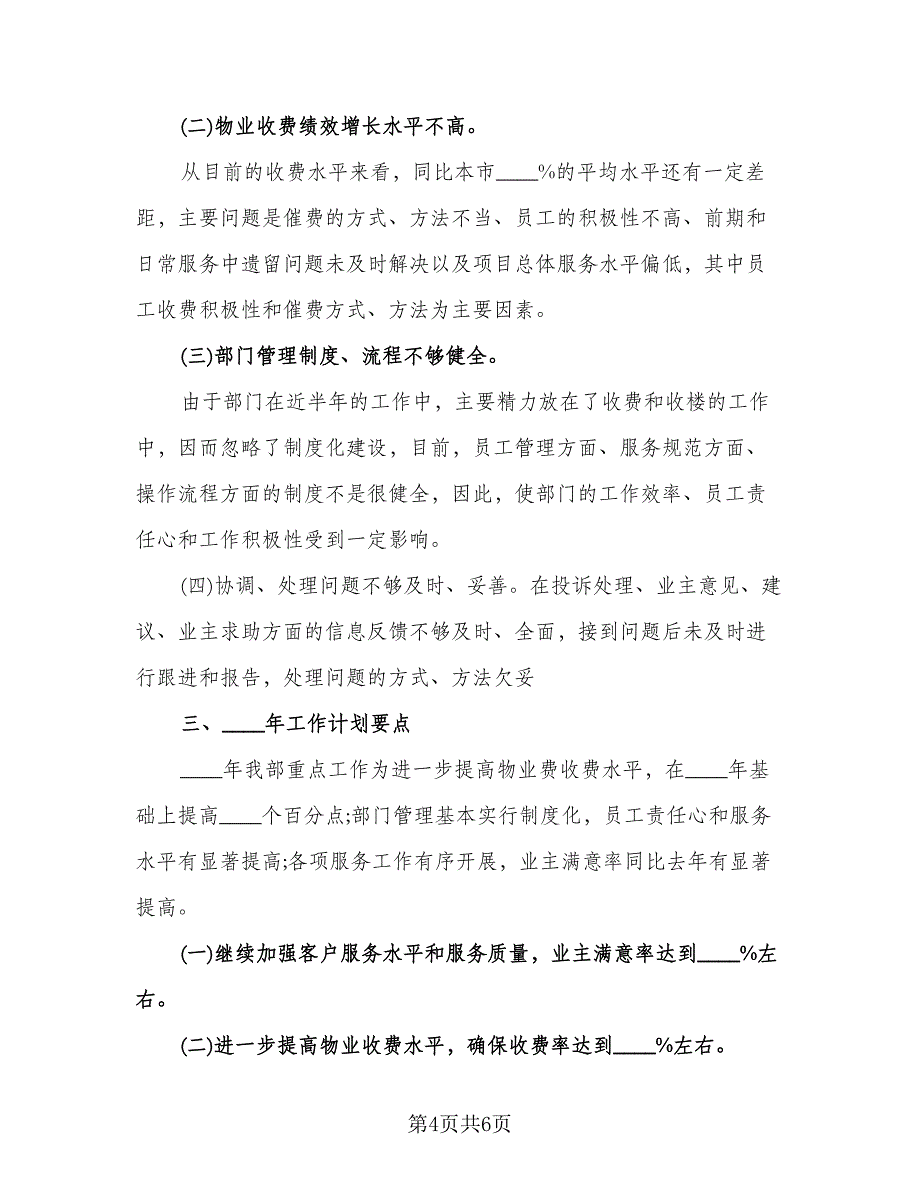 (二)物业收费绩效增长水平不高。
从目前的收费水平来看，同比本市____%的平均水平还有一定差
距，主要问题是催费的方式、方法不当、员工的积极性不高、前期和
日常服务中遗留问题未及时解决以及项目总体服务水平偏低，其中员
工收费积极性和催费方式、方法为主要因素。
(三)部门管理制度、流程不够健全。
由于部门在近半年的工作中，主要精力放在了收费和收楼的工作
中，因而忽略了制度化建设，目前，员工管理方面、服务规范方面、
操作流程方面的制度不是很健全，因此，使部门的工作效率、员工责
任心和工作积极性受到一定影响。
(四)协调、处理问题不够及时、妥善。在投诉处理、业主意见、建
议、业主求助方面的信息反馈不够及时、全面，接到问题后未及时进
行跟进和报告，处理问题的方式、方法欠妥
三、____年工作计划要点
____年我部重点工作为进一步提高物业费收费水平，在____年基
础上提高____个百分点;部门管理基本实行制度化，员工责任心和服务
水平有显著提高;各项服务工作有序开展，业主满意率同比去年有显著
提高。
(一)继续加强客户服务水平和服务质量，业主满意率达到____%左
右。
(二)进一步提高物业收费水平，确保收费率达到____%左右。
第4页共6页